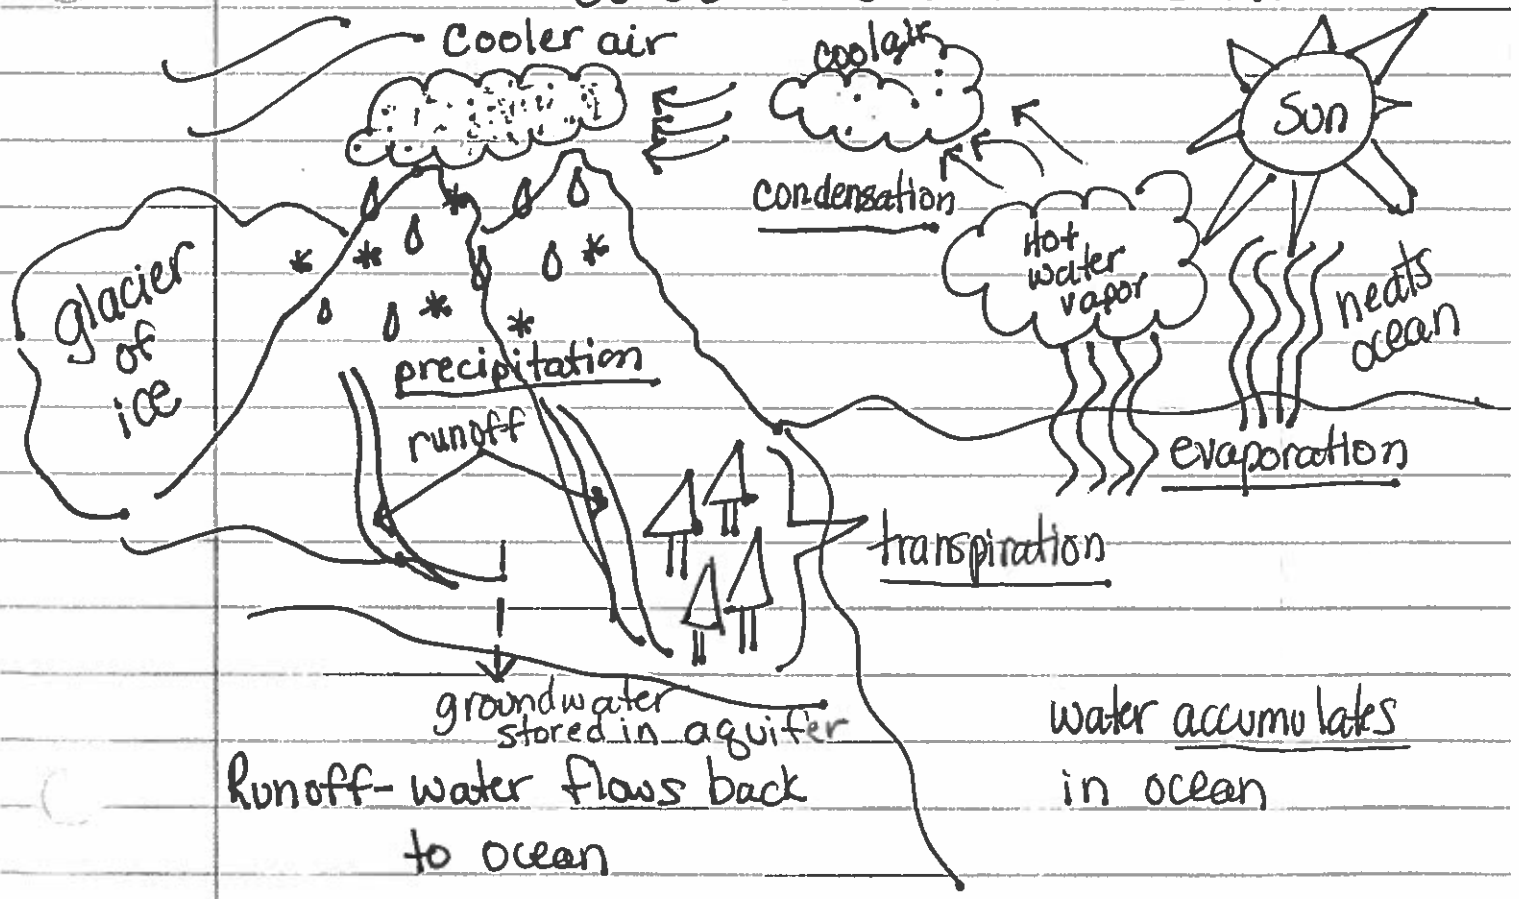 Cooler air
cool air
Sun
condensation
Hot
water
vapor
heats
ocean
glacier
of
ice
precipitation
runoff
evaporation
transpiration
groundwater
stored in aquifer
Runoff - water flows back
to ocean
water accumulates
in ocean